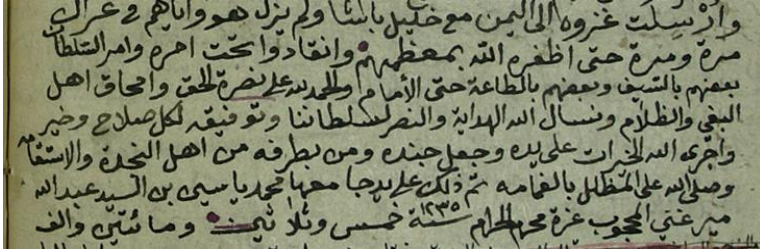 وارسلت غزوه الى اليمن مع خليل باشا ولم يزل هو واياهم في عراك
مرة ومرة حتى اظفره الله بمعظمهم وانقادوا تحت امره وامر السلطان
بعضهم بالسيف وبعضهم بالطاعة حتى الأمام والحمد لله على نصرة الحق وامحاق اهل
البغي والظلام ونسال الله الهداية والنصر لسلطاننا وتوفيقه لكل صلاح وخير
واجرى الله الخيرات على يده وجعل جنده ومن بطرفه من اهل النجدة والاستقامه
وصلى الله على المظلل بالغمامه تم ذلك على يد جامعها محمد ياسين بن السيد عبد الله
ميرغني المحجوب غرة محرم الحرام سنة ١٢٣٥ خمس وثلاثين ومائتين والف